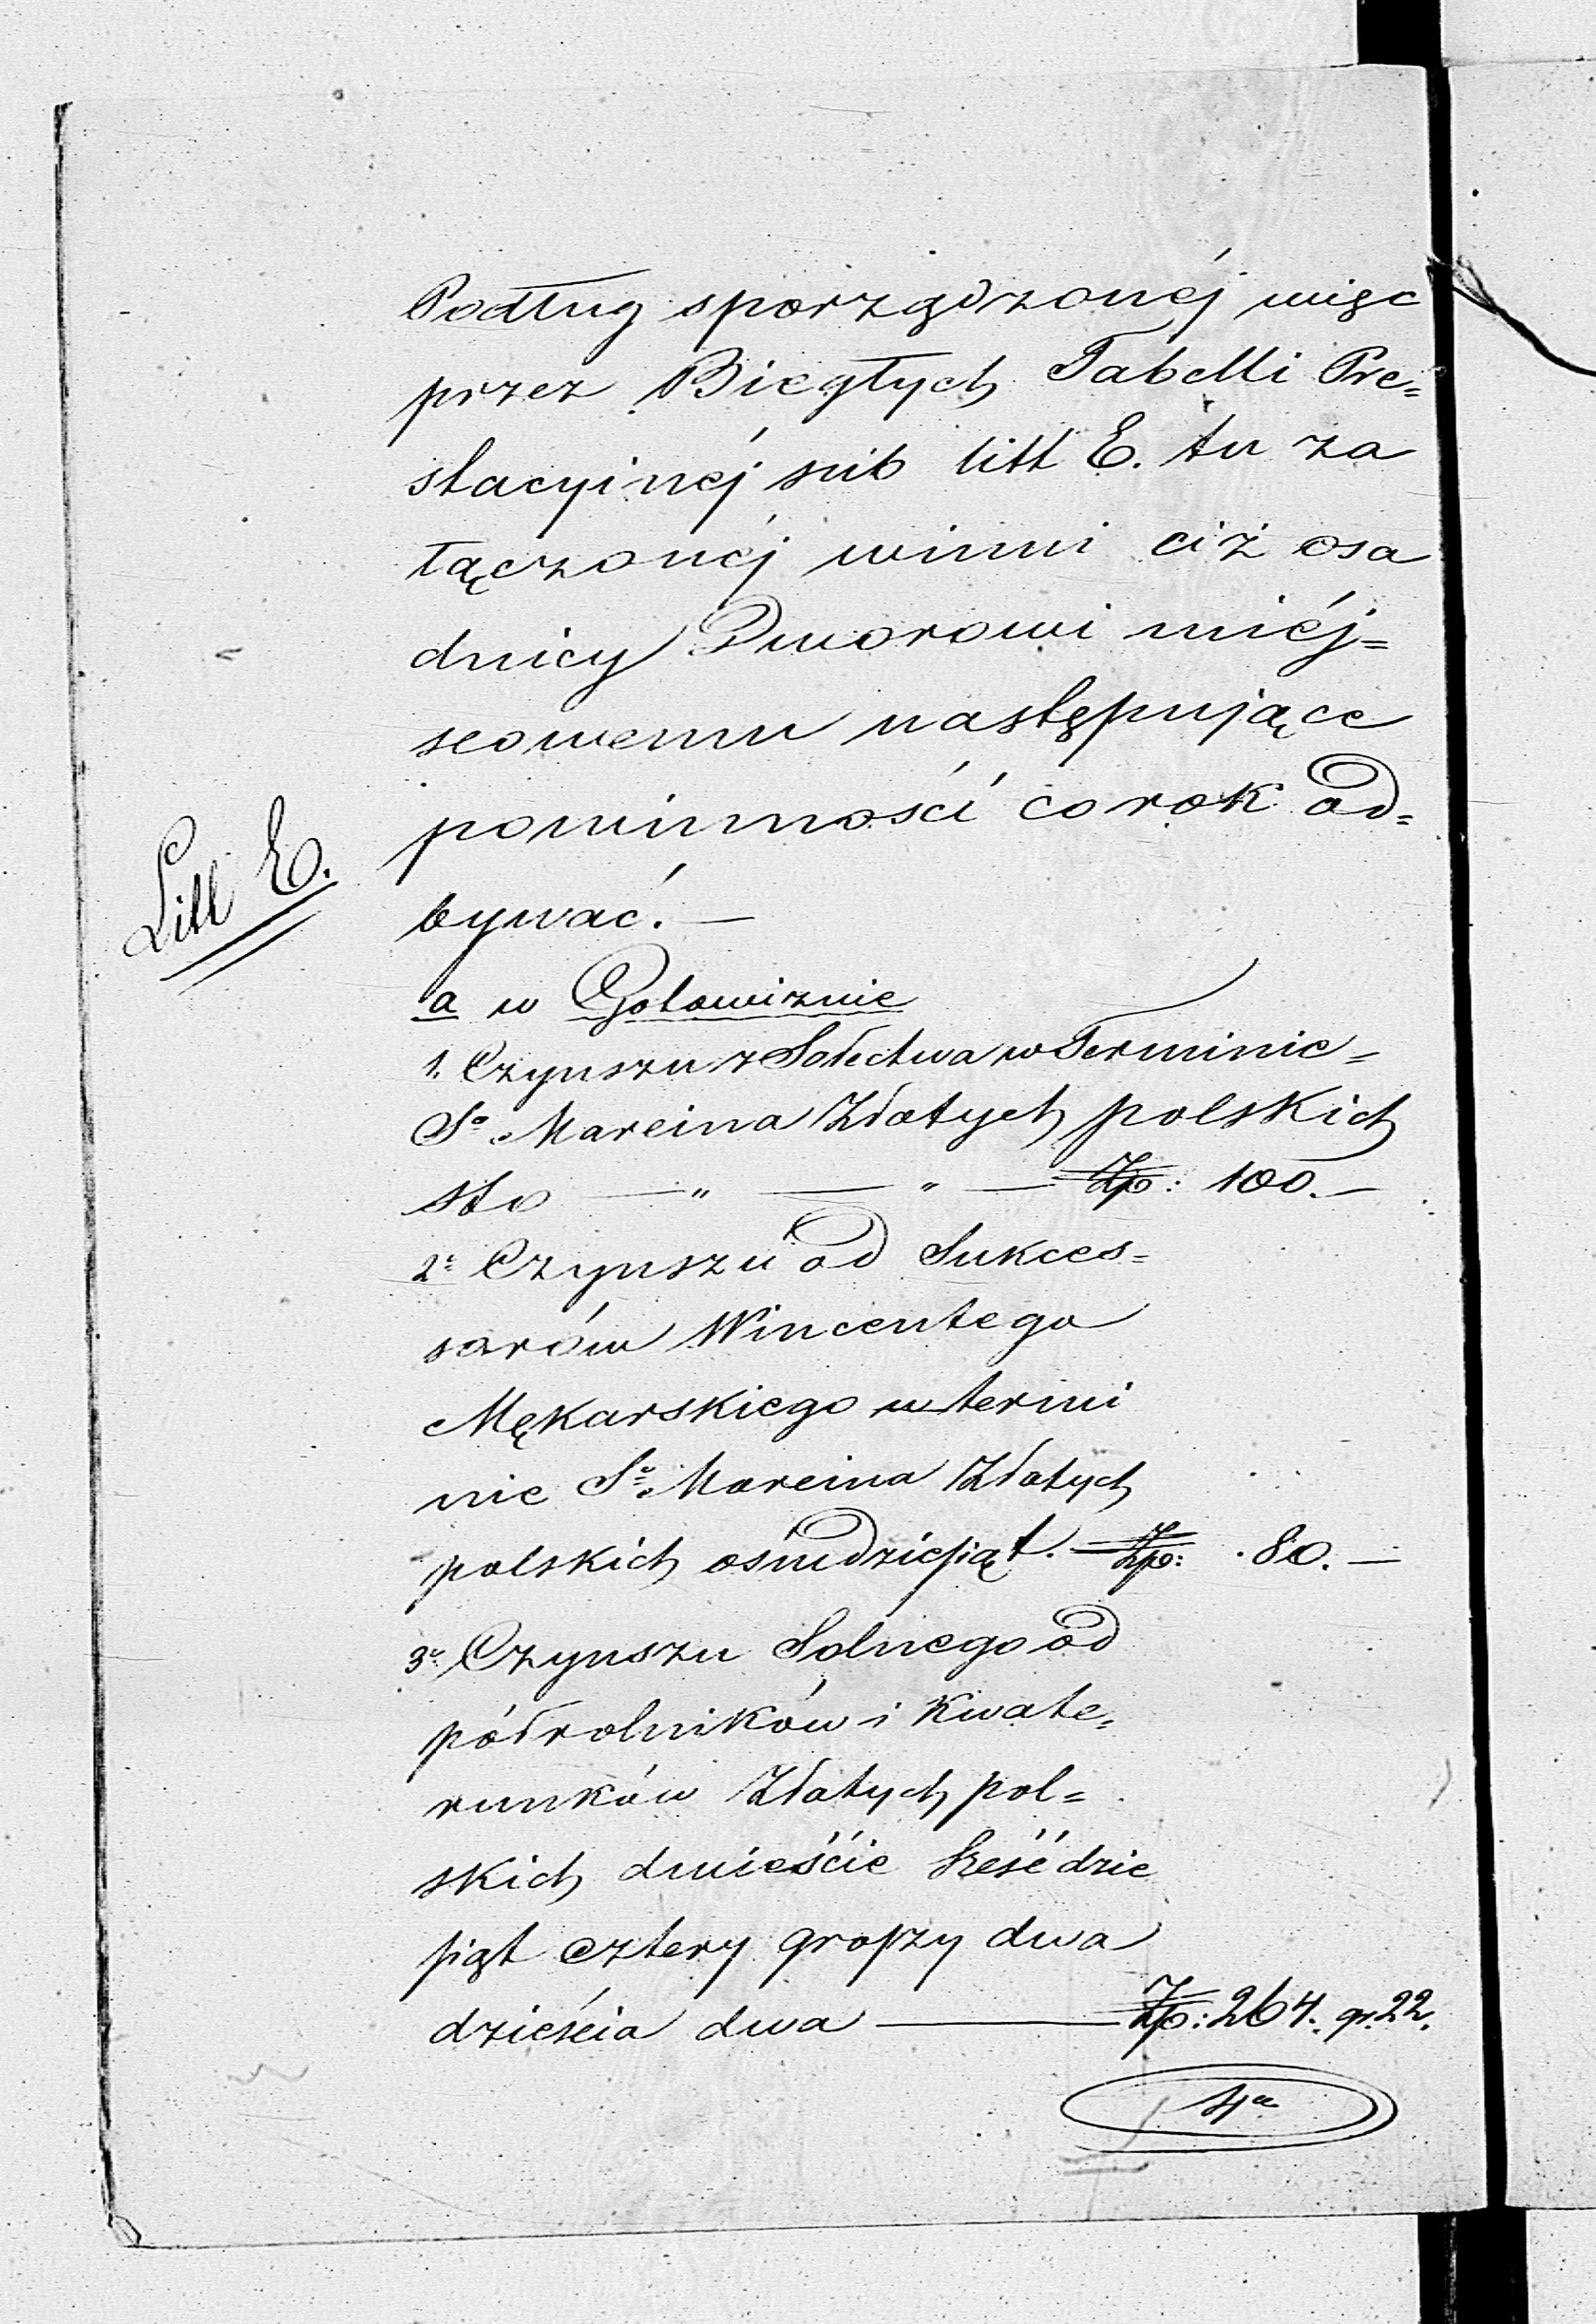 Podług sporządzonéj więc
przez Biegłych Tabelli Pre=
stacyinéj sub litt E. tu za
łączonéj winni ciż osa
dnicy Dworowi miéj=
scowemu następujące
powinności co rok od=
bywać. —
Litt E.
a w Gotowiznie
1. Czynszu z Sołectwa w Terminie =
So Marcina Złotych polskich
sto — " — " — Zp: 100. —
2o Czynszu od Sukces=
sorów Wincentego
Mękarskiego w termi
nie So Marcina Złotych
polskich ośmdziesiąt. — Zp: 80. —
3o Czynszu Solnego od
półrolników i Kwate=
runków Złotych pol=
skich dwieście sześćdzie
siąt cztery groszy dwa
dzieścia dwa — Zp: 264. gr. 22.
4o